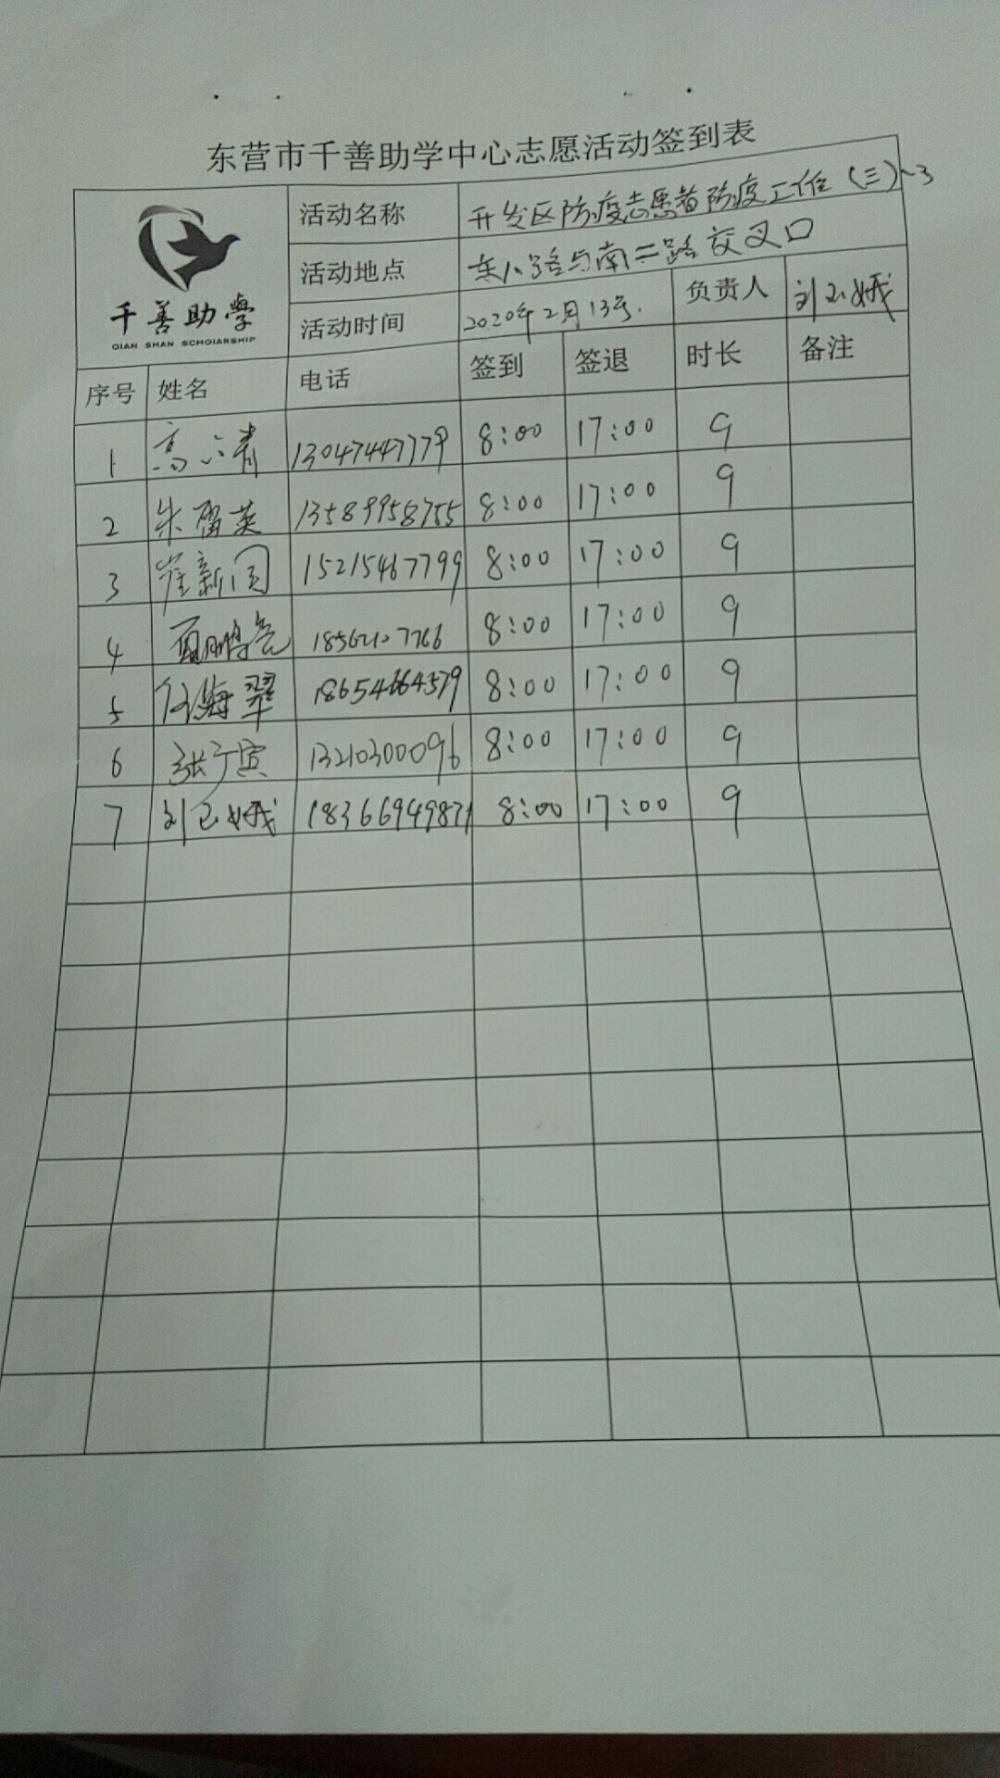 东营市千善助学中心志愿活动签到表
千善助学
QIAN SHAN SCHOlARSHIP
活动名称 开发区防疫志愿者防疫工作(三)~3
活动地点 东八路与南二路交叉口
活动时间 2020年2月13号. 负责人 刘玉娥
序号 姓名 电话 签到 签退 时长 备注
1 高 青 13047447779 8:00 17:00 9
2 朱雷英 13589958755 8:00 17:00 9
3 崔新国 15215467799 8:00 17:00 9
4 18562107766 8:00 17:00 9
5 任海翠 18654664579 8:00 17:00 9
6 张广宾 13210300096 8:00 17:00 9
7 刘玉娥 18366949871 8:00 17:00 9